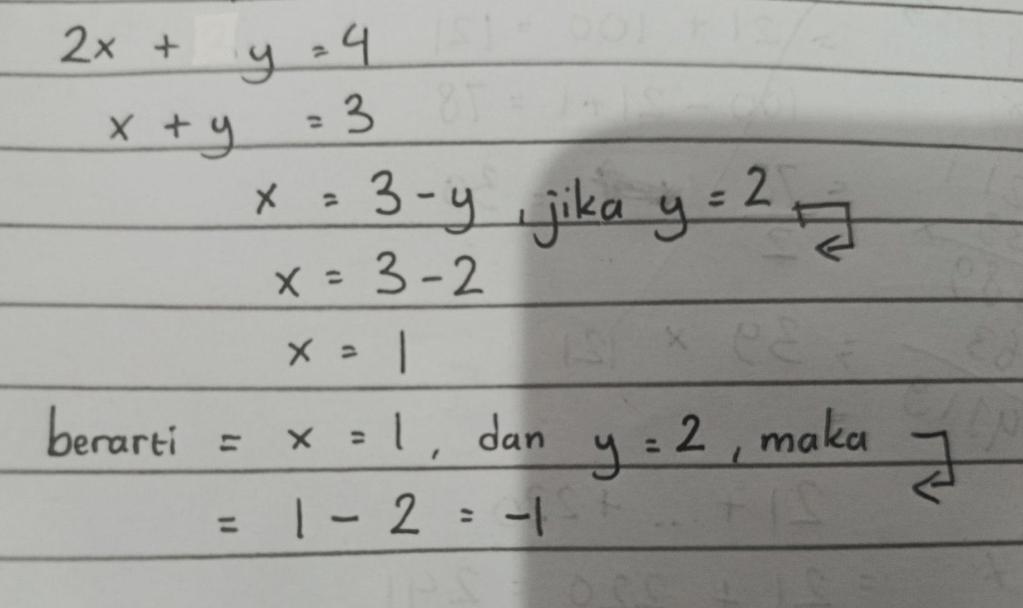 2x + y = 4
x + y = 3
x = 3 - y, jika y = 2
x = 3 - 2
x = 1
berarti = x = 1, dan y = 2, maka
= 1 - 2 = -1